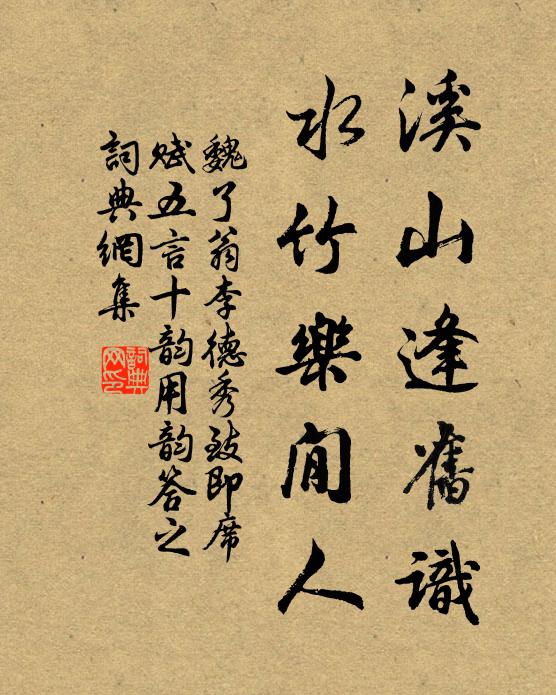 溪山逢舊識
水竹樂閒人
魏了翁李德秀致即席
賦五言十韵用韵答之
詞典網集
詞典網印